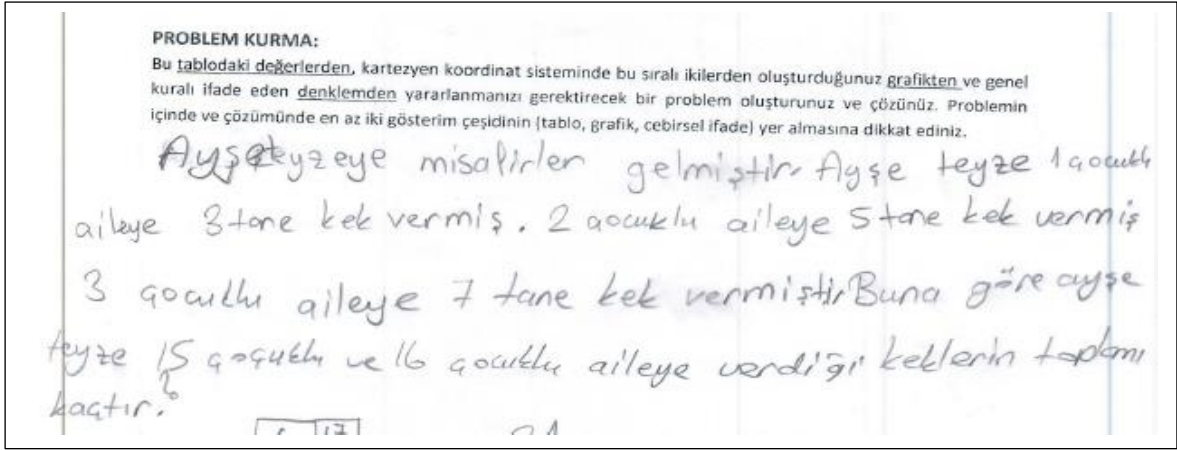 PROBLEM KURMA:
Bu tablodaki değerlerden, kartezyen koordinat sisteminde bu sıralı ikilerden oluşturduğunuz grafikten ve genel
kuralı ifade eden denklemden yararlanmanızı gerektirecek bir problem oluşturunuz ve çözünüz. Problemin
içinde ve çözümünde en az iki gösterim çeşidinin (tablo, grafik, cebirsel ifade) yer almasına dikkat ediniz.
Ayşe teyzeye misafirler gelmiştir. Ayşe teyze 1 çocuklu
aileye 3 tane kek vermiş. 2 çocuklu aileye 5 tane kek vermiş
3 çocuklu aileye 7 tane kek vermiştir. Buna göre ayşe
teyze 15 çoçuklu ve 16 çocuklu aileye verdiği keklerin toplamı
kaçtır?
17